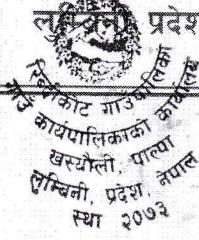 लुम्बिनी प्रदेश
रिब्दीकोट गाउँपालिका
गाउँ कार्यपालिकाको कार्यालय
खस्यौली, पाल्पा
लुम्बिनी, प्रदेश, नेपाल
स्था २०७३